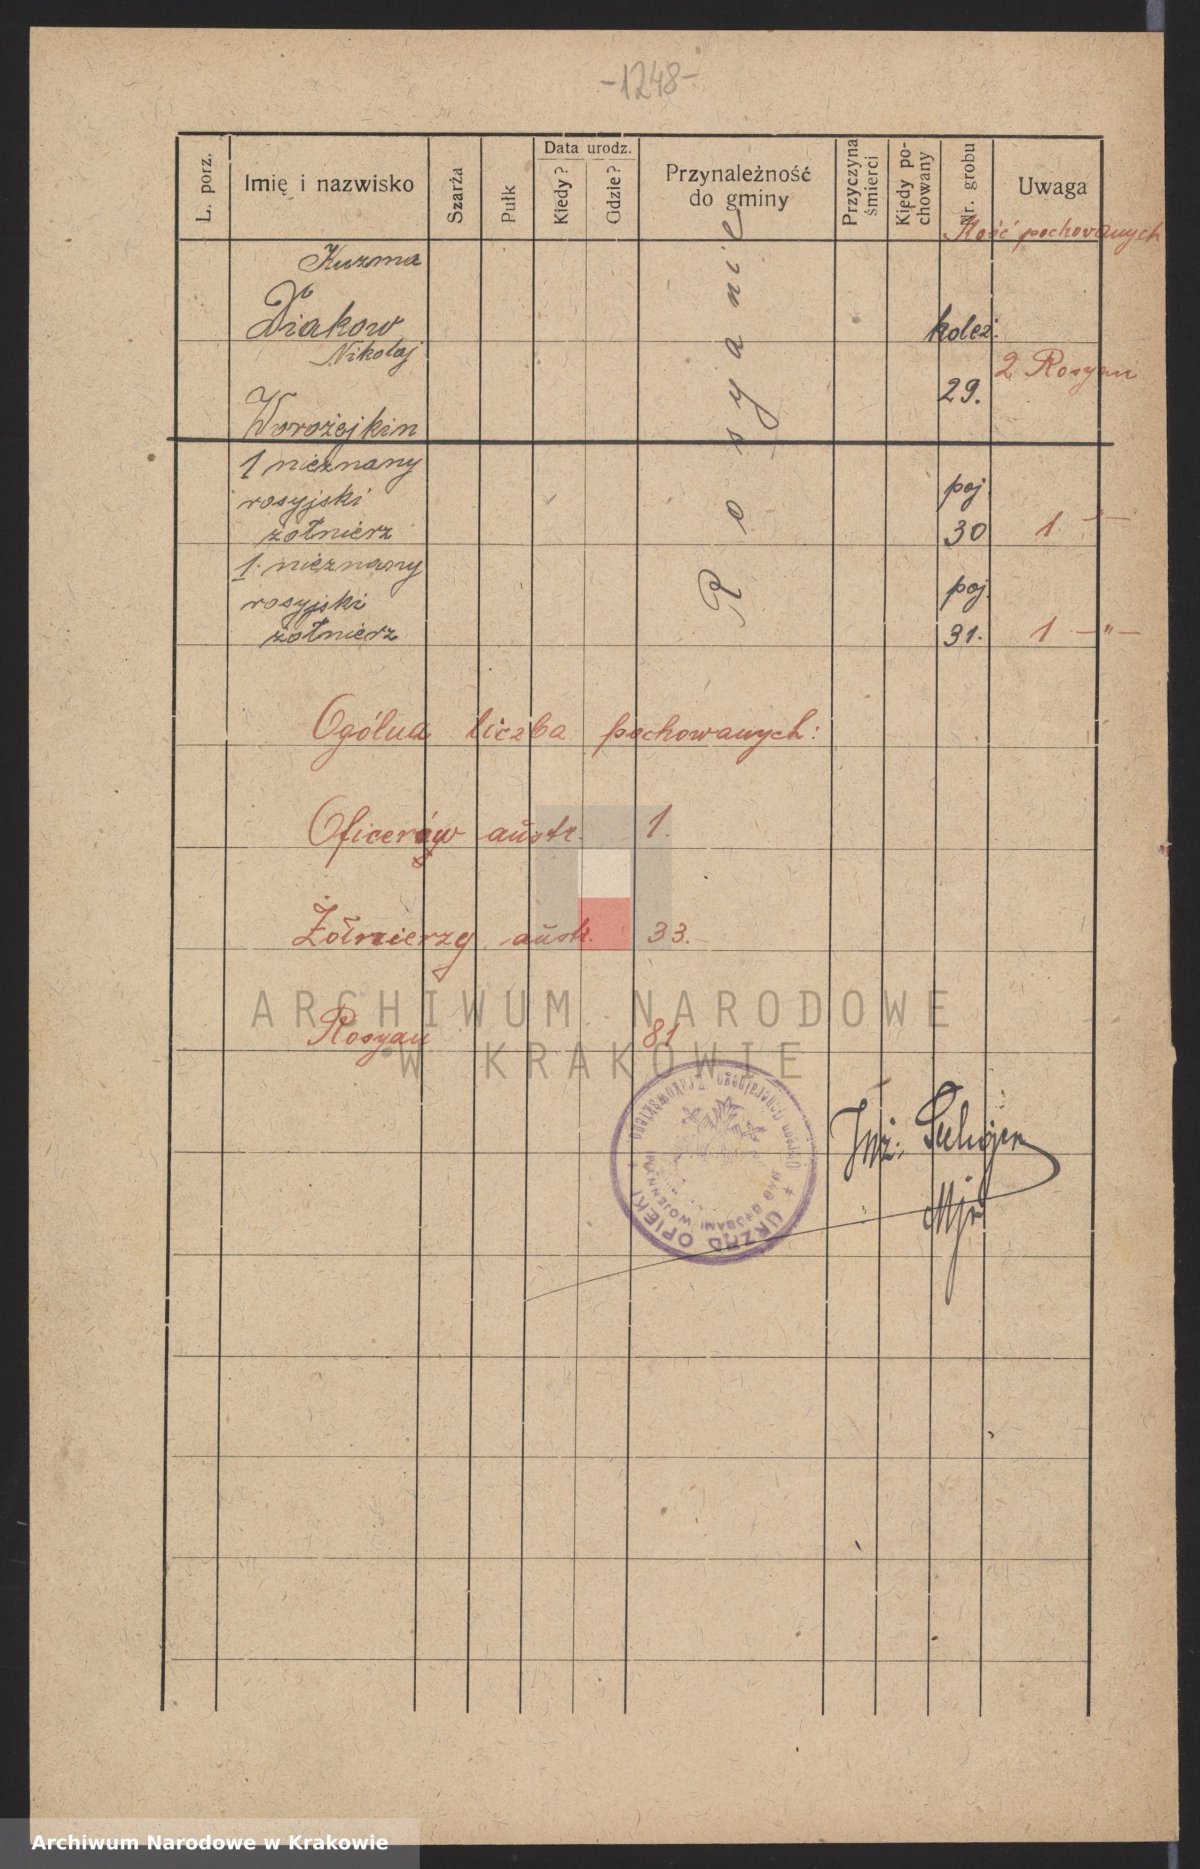 -1248-
L. porz.
Imię i nazwisko
Szarża
Pułk
Data urodz.
Kiedy?
Gdzie?
Przynależność
do gminy
Przyczyna
śmierci
Kiedy po-
chowany
Nr. grobu
Uwaga
Ilość pochowanych
Rosyanie
Kuzma
Diakow
kolez:
Nikołaj
2 Rosyan
29.
Worożejkin
1 nieznany
rosyjski
poj
żołnierz
30
1 -"-
1. nieznany
rosyjski
poj.
żołnierz
31.
1 -"-
Ogólna liczba pochowanych:
Oficerów austr. 1.
Żołnierzy austr. 33.
Rosyan 81
ARCHIWUM NARODOWE
W KRAKOWIE
Okręgu Generalnego Krakowskiego
* URZĄD OPIEKI *
NAD GROBAMI WOJENNYMI
Inż.
Mjr
Archiwum Narodowe w Krakowie